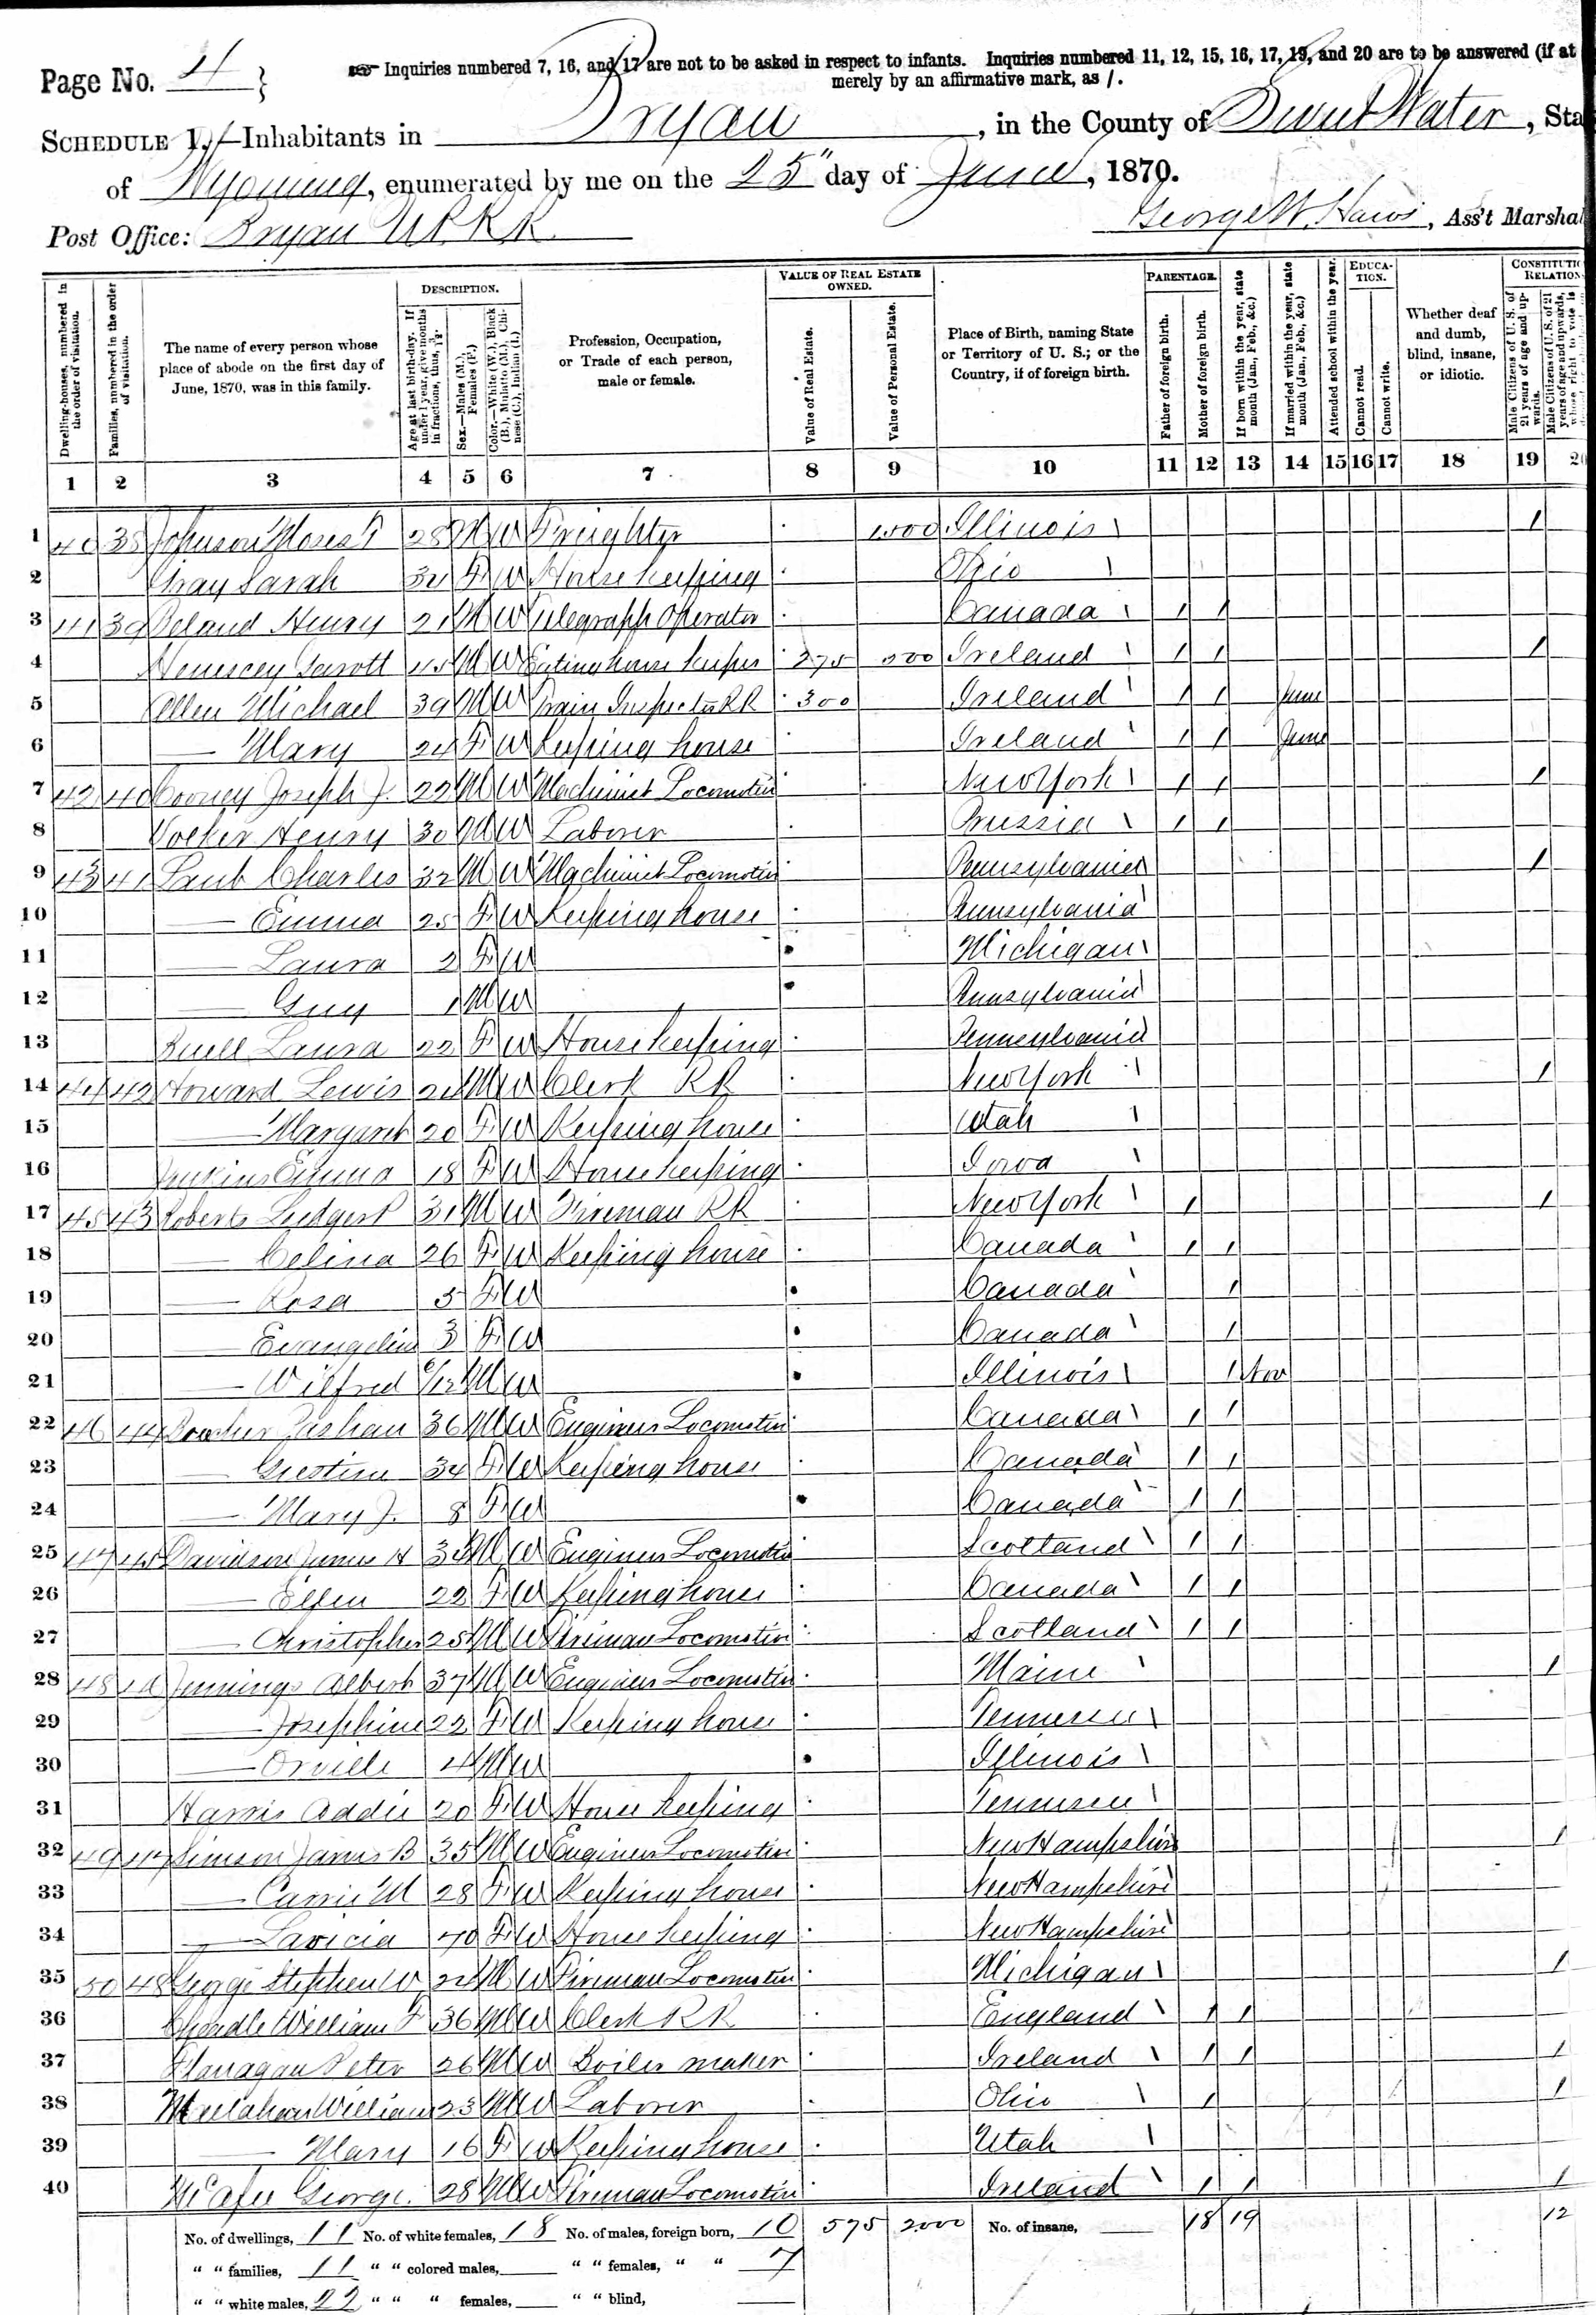 Page No. 4
Inquiries numbered 7, 16, and 17 are not to be asked in respect to infants. Inquiries numbered 11, 12, 15, 16, 17, 19, and 20 are to be answered (if at
merely by an affirmative mark, as /.
SCHEDULE 1.—Inhabitants in Bryan, in the County of Sweet Water, Sta
of Wyoming, enumerated by me on the 25" day of June, 1870.
Post Office: Bryan U P R R
George W. , Ass't Marshal
Dwelling-houses, numbered in the order of visitation.
Families, numbered in the order of visitation.
The name of every person whose place of abode on the first day of June, 1870, was in this family.
DESCRIPTION.
Age at last birth-day. If under 1 year, give months in fractions, thus, 3/12.
Sex.—Males (M.), Females (F.)
Color.—White (W.), Black (B.), Mulatto (M.), Chinese (C.), Indian (I.)
Profession, Occupation, or Trade of each person, male or female.
VALUE OF REAL ESTATE OWNED.
Value of Real Estate.
Value of Personal Estate.
Place of Birth, naming State or Territory of U. S.; or the Country, if of foreign birth.
PARENTAGE.
Father of foreign birth.
Mother of foreign birth.
If born within the year, state month (Jan., Feb., &c.)
If married within the year, state month (Jan., Feb., &c.)
Attended school within the year.
EDUCATION.
Cannot read.
Cannot write.
Whether deaf and dumb, blind, insane, or idiotic.
CONSTITUTIO RELATION
Male Citizens of U. S. of 21 years of age and upwards.
Male Citizens of U. S. of 21 years of age and upwards, whose right to vote is
1 2 3 4 5 6 7 8 9 10 11 12 13 14 15 16 17 18 19 20
1 40 38 Johnson Moses 28 M W Freighter Illinois /
2 Gray Sarah F W House Keeping Ohio
3 41 39 Henry 21 M W Telegraph Operator Canada / /
4 45 M W Eating house keeper 275 Ireland / / /
5 Michael 39 M W Train Inspector RR 300 Ireland / / June
6 — Mary 24 F W Keeping house Ireland / / June
7 42 40 Cooney Joseph J. 22 M W Machinist Locomotive New York / / /
8 Henry 30 M W Laborer Prussia / /
9 43 41 Charles 32 M W Machinist Locomotive Pennsylvania /
10 — Emma 25 F W Keeping house Pennsylvania
11 — Laura 2 F W Michigan
12 — Guy 1 M W Pennsylvania
13 Laura 22 F W House Keeping Pennsylvania
14 44 42 Howard Lewis 24 M W Clerk RR New York /
15 — Margaret 20 F W Keeping house Utah
16 Emma 18 F W House keeping Iowa
17 45 43 Roberts 31 M W Fireman RR New York / /
18 — Celina 26 F W Keeping house Canada / /
19 — Rosa 5 F W Canada /
20 — Evangeline 3 F W Canada /
21 — Wilfred /12 M W Illinois / Nov
22 46 44 36 M W Engineer Locomotive Canada / /
23 — 34 F W Keeping house Canada / /
24 — Mary J. 8 F W Canada / /
25 47 45 Davidson James H M W Engineer Locomotive Scotland / /
26 — Ellen 22 F W Keeping house Canada / /
27 — Christopher 25 M W Fireman Locomotive Scotland / /
28 48 Jennings Albert 37 M W Engineer Locomotive Maine /
29 — Josephine 22 F W Keeping house Tennessee
30 — Orville 4 M W Illinois
31 Harris Addie 20 F W House keeping Tennessee
32 49 47 James B 35 M W Engineer Locomotive New Hampshire /
33 — Carrie M 28 F W Keeping house New Hampshire
34 — 70 F W House keeping New Hampshire
35 50 48 Stephen W M W Fireman Locomotive Michigan /
36 William 36 M W Clerk RR England / /
37 Flanagan Peter 26 M W Boiler maker Ireland / / /
38 William 23 M W Laborer Ohio / /
39 — Mary 16 F W Keeping house Utah
40 McAfee George 28 M W Fireman Locomotive Ireland / / /
No. of dwellings, 11 No. of white females, 18 No. of males, foreign born, 10 575 2000 No. of insane, 18 19 12
" " families, 11 " " colored males, " " females, " " 7
" " white males, 22 " " " females, " " blind,